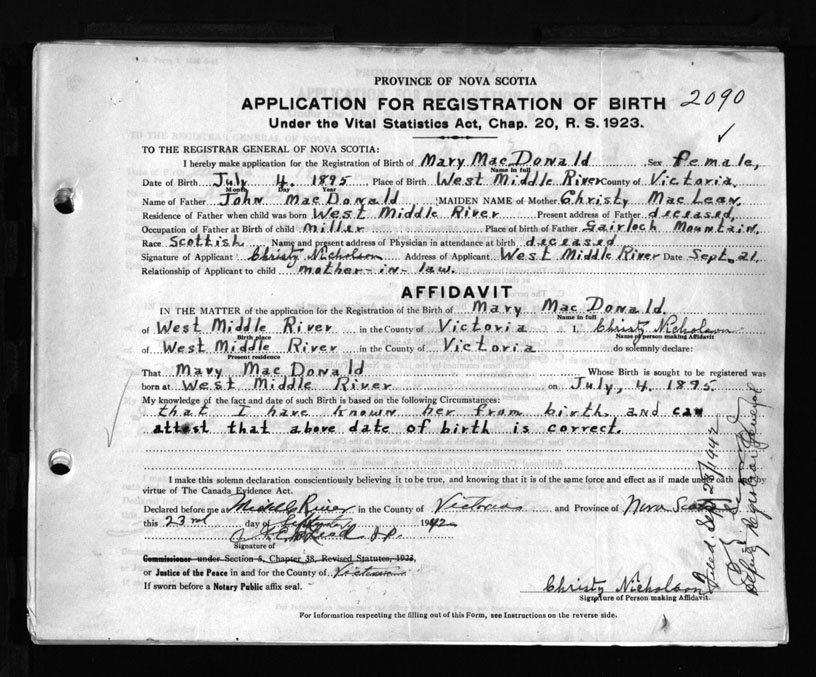 PROVINCE OF NOVA SCOTIA
APPLICATION FOR REGISTRATION OF BIRTH 2090
Under the Vital Statistics Act, Chap. 20, R. S. 1923.
TO THE REGISTRAR GENERAL OF NOVA SCOTIA:
I hereby make application for the Registration of Birth of Mary MacDonald Sex female,
Name in full
Date of Birth July 4. 1895 Place of Birth West Middle River County of Victoria.
Month Day Year
Name of Father John MacDonald MAIDEN NAME of Mother Christy MacLean,
Residence of Father when child was born West Middle River Present address of Father deceased,
Occupation of Father at Birth of child miller Place of birth of Father Gairloch Mountain,
Race Scottish Name and present address of Physician in attendance at birth deceased
Signature of Applicant Christy Nicholson Address of Applicant West Middle River Date Sept. 21,
Relationship of Applicant to child mother-in-law.
AFFIDAVIT
IN THE MATTER of the application for the Registration of the Birth of Mary MacDonald.
Name in full
of West Middle River in the County of Victoria I, Christy Nicholson
Birth place Name of person making Affidavit
of West Middle River in the County of Victoria do solemnly declare:
Present residence
That Mary MacDonald Whose Birth is sought to be registered was
born at West Middle River on July, 4. 1895
My knowledge of the fact and date of such Birth is based on the following Circumstances:
that I have known her from birth and can
attest that above date of birth is correct.
I make this solemn declaration conscientiously believing it to be true, and knowing that it is of the same force and effect as if made under oath and by
virtue of The Canada Evidence Act.
Declared before me at Middle River in the County of Victoria and Province of Nova Scotia
this 23rd day of September 1942
J.P.
Signature of
Commissioner under Section 5, Chapter 38, Revised Statutes, 1923,
or Justice of the Peace in and for the County of Victoria
If sworn before a Notary Public affix seal.
Christy Nicholson
Signature of Person making Affidavit.
For Information respecting the filling out of this Form, see Instructions on the reverse side.
Filed. Sept 28/1942
Deputy Registrar General